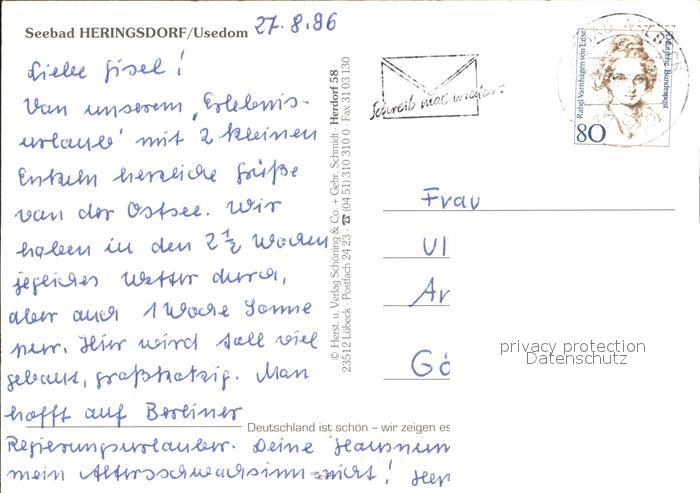 Seebad HERINGSDORF/Usedom 27.8.96
Liebe Gisel!
Von unserem "Erlebnis-
urlaub" mit 2 kleinen
Enkeln herzliche Grüße
von der Ostsee. Wir
haben in den 2 1/2 Wochen
jegliches Wetter durch,
aber auch 1 Woche Sonne
pur. Hier wird toll viel
gebaut, großkotzig. Man
hofft auf Berliner
Regierungsurlauber. Deine Hausnum
mein Altersschwachsinn nicht! Her
Deutschland ist schön – wir zeigen es
© Herst. u. Verlag Schöning & Co. + Gebr. Schmidt · Herdorf 58
23512 Lübeck · Postfach 24 23 · ☎ (04 51) 310 310 0 · Fax 31 03 130
Schreib mal wieder
Rahel Varnhagen von Ense
Deutsche Bundespost
80
Frau
Ul
Ar
Gö
privacy protection
Datenschutz